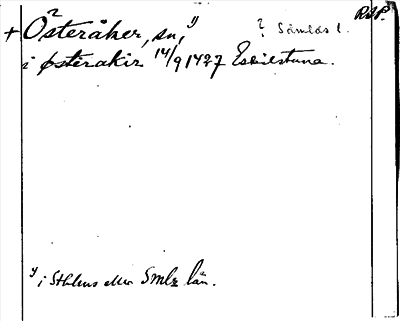 RAP.
+ Österåker, sn, y) ? Sämlås l.
i østerakir 14/9 1427 Eskilstuna.
y) i Sthlms eller Smlz län.